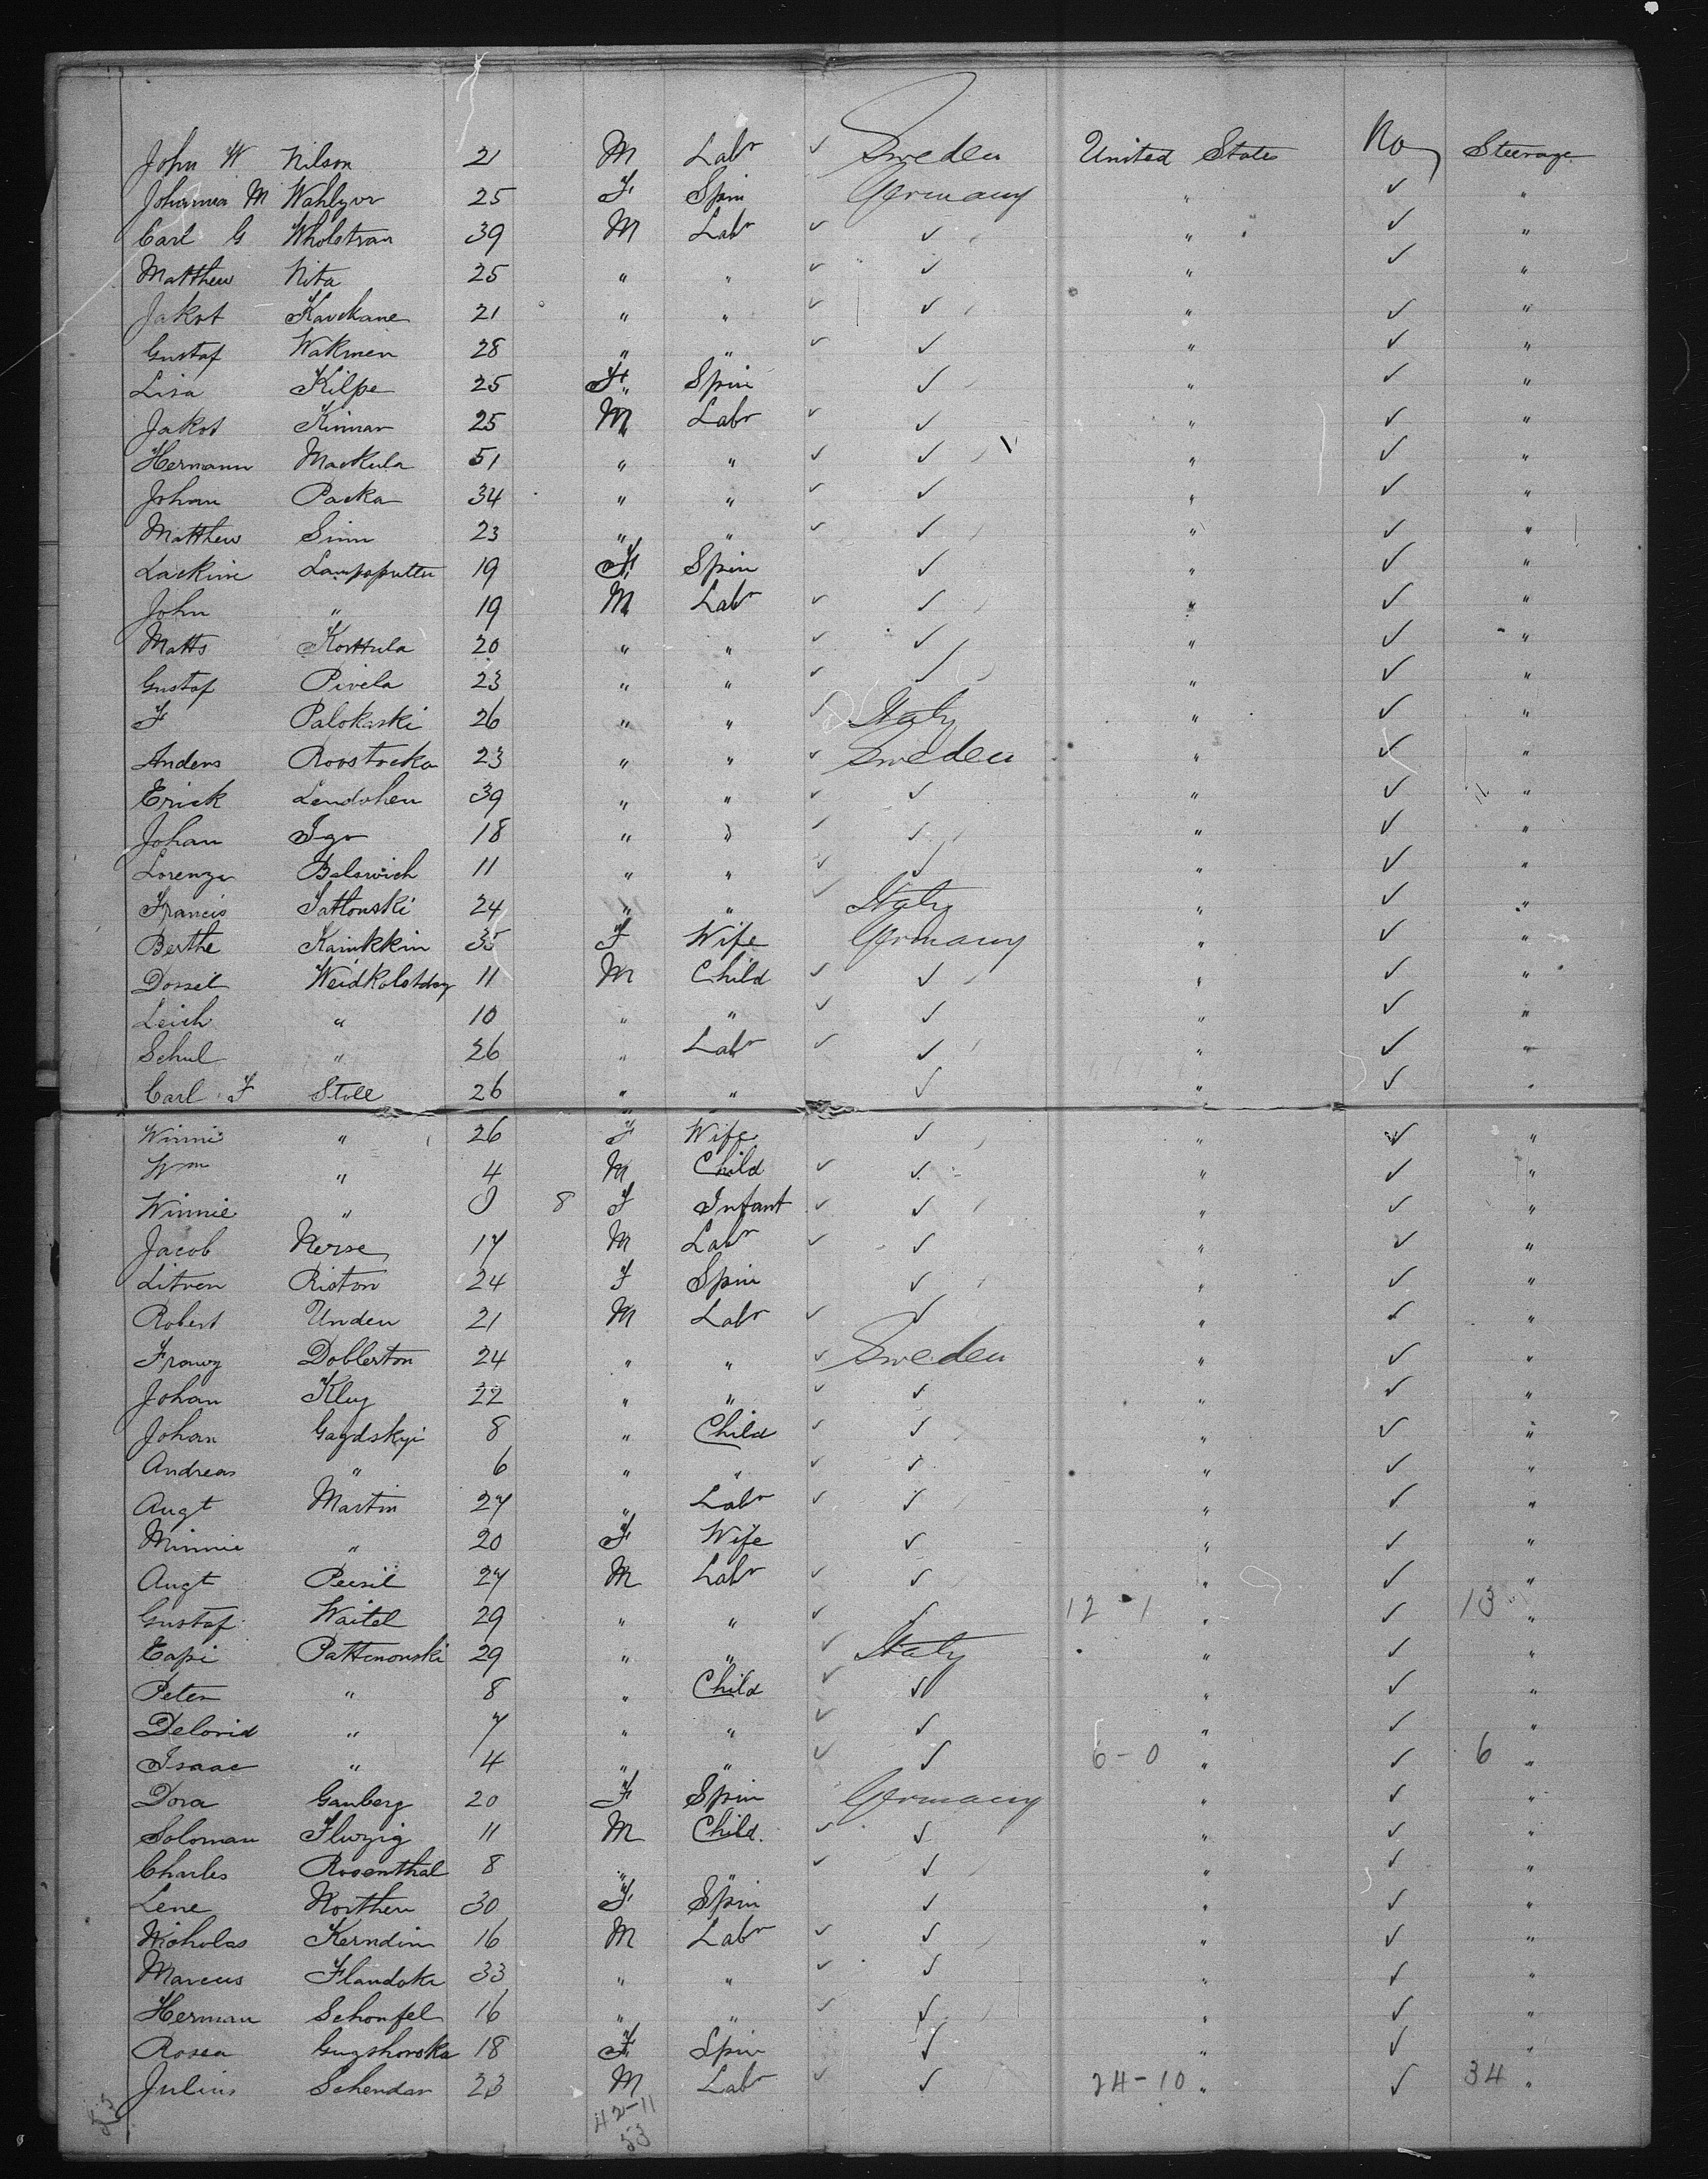 John W Nilson 21 M Labr ✓ Sweden United States No Steerage
Johanna M Wahlyvr 25 F Spin Germany " ✓ "
Carl G Wholstran 39 M Labr ✓ ✓ " ✓ "
Matthew Nita 25 " " ✓ ✓ " ✓ "
Jakot Kavekane 21 " " ✓ ✓ " ✓ "
Gustaf Wakmen 28 " " ✓ ✓ " ✓ "
Lisa Kilpe 25 F Spin ✓ " ✓ "
Jakot Kinnar 25 M Labr ✓ ✓ " ✓ "
Hermann Mackula 51 " " ✓ ✓ " ✓ "
Johan Packa 34 " " ✓ ✓ " ✓ "
Matthew Sinn 23 " " ✓ ✓ " ✓ "
Lackine Lampoputter 19 F Spin ✓ " ✓ "
John " 19 M Labr ✓ ✓ " ✓ "
Matts Korttula 20 " " ✓ ✓ " ✓ "
Gustaf Pivela 23 " " ✓ ✓ " ✓ "
F Palokaski 26 " " ✓ Italy " ✓ "
Anders Roostocka 23 " " ✓ Sweden " ✓ "
Erick Lendohen 39 " " ✓ ✓ " ✓ "
Johan Igo 18 " " ✓ ✓ " ✓ "
Lorenze Balswich 11 " " ✓ ✓ " ✓ "
Francis Sattonski 24 " " ✓ Italy " ✓ "
Berthe Kainkkin 35 F Wife Germany " ✓ "
Dossel Weidkolstday 11 M Child ✓ ✓ " ✓ "
Leich " 10 " " ✓ ✓ " ✓ "
Schul " 26 " Labr ✓ ✓ " ✓ "
Carl F Stoll 26 " " ✓ " ✓ "
Winnie " 26 F Wife ✓ " ✓ "
Wm " 4 M Child ✓ ✓ " ✓ "
Winnie " 0 8 F Infant ✓ ✓ " ✓ "
Jacob Nerse 17 M Labr ✓ ✓ " ✓ "
Litven Riston 24 F Spin ✓ " ✓ "
Robert Unden 21 M Labr ✓ ✓ " ✓ "
Franz Doblerton 24 " " ✓ Sweden " ✓ "
Johan Kluy 22 " " ✓ ✓ " ✓ "
Johan Gaydskyi 8 " Child ✓ ✓ " ✓ "
Andreas " 6 " " ✓ ✓ " ✓ "
Augt Martin 27 " Labr ✓ ✓ " ✓ "
Minnie " 20 F Wife ✓ " ✓ "
Augt Peesil 27 M Labr ✓ ✓ " ✓ "
Gustaf Waitel 29 " " ✓ ✓ 12 - 1 " ✓ 13 "
Capi Pattenonski 29 " " ✓ Italy " ✓ "
Peter " 8 " Child ✓ ✓ " ✓ "
Delorid " 7 " " ✓ ✓ " ✓ "
Isaac " 4 " " ✓ ✓ 6 - 0 " ✓ 6 "
Dora Ganberg 20 F Spin Germany " ✓ "
Soloman Flurzig 11 M Child ✓ ✓ " ✓ "
Charles Rosenthal 8 " " ✓ ✓ " ✓ "
Lene Northen 30 F Spin ✓ " ✓ "
Nicholas Kerndin 16 M Labr ✓ ✓ " ✓ "
Marcus Flandoka 33 " " ✓ ✓ " ✓ "
Herman Schonfel 16 " " ✓ ✓ " ✓ "
Rosea Gugshorska 18 F Spin ✓ " ✓ "
Julius Schendar 23 M Labr ✓ ✓ 24 - 10 " ✓ 34 "
53 42-11
53